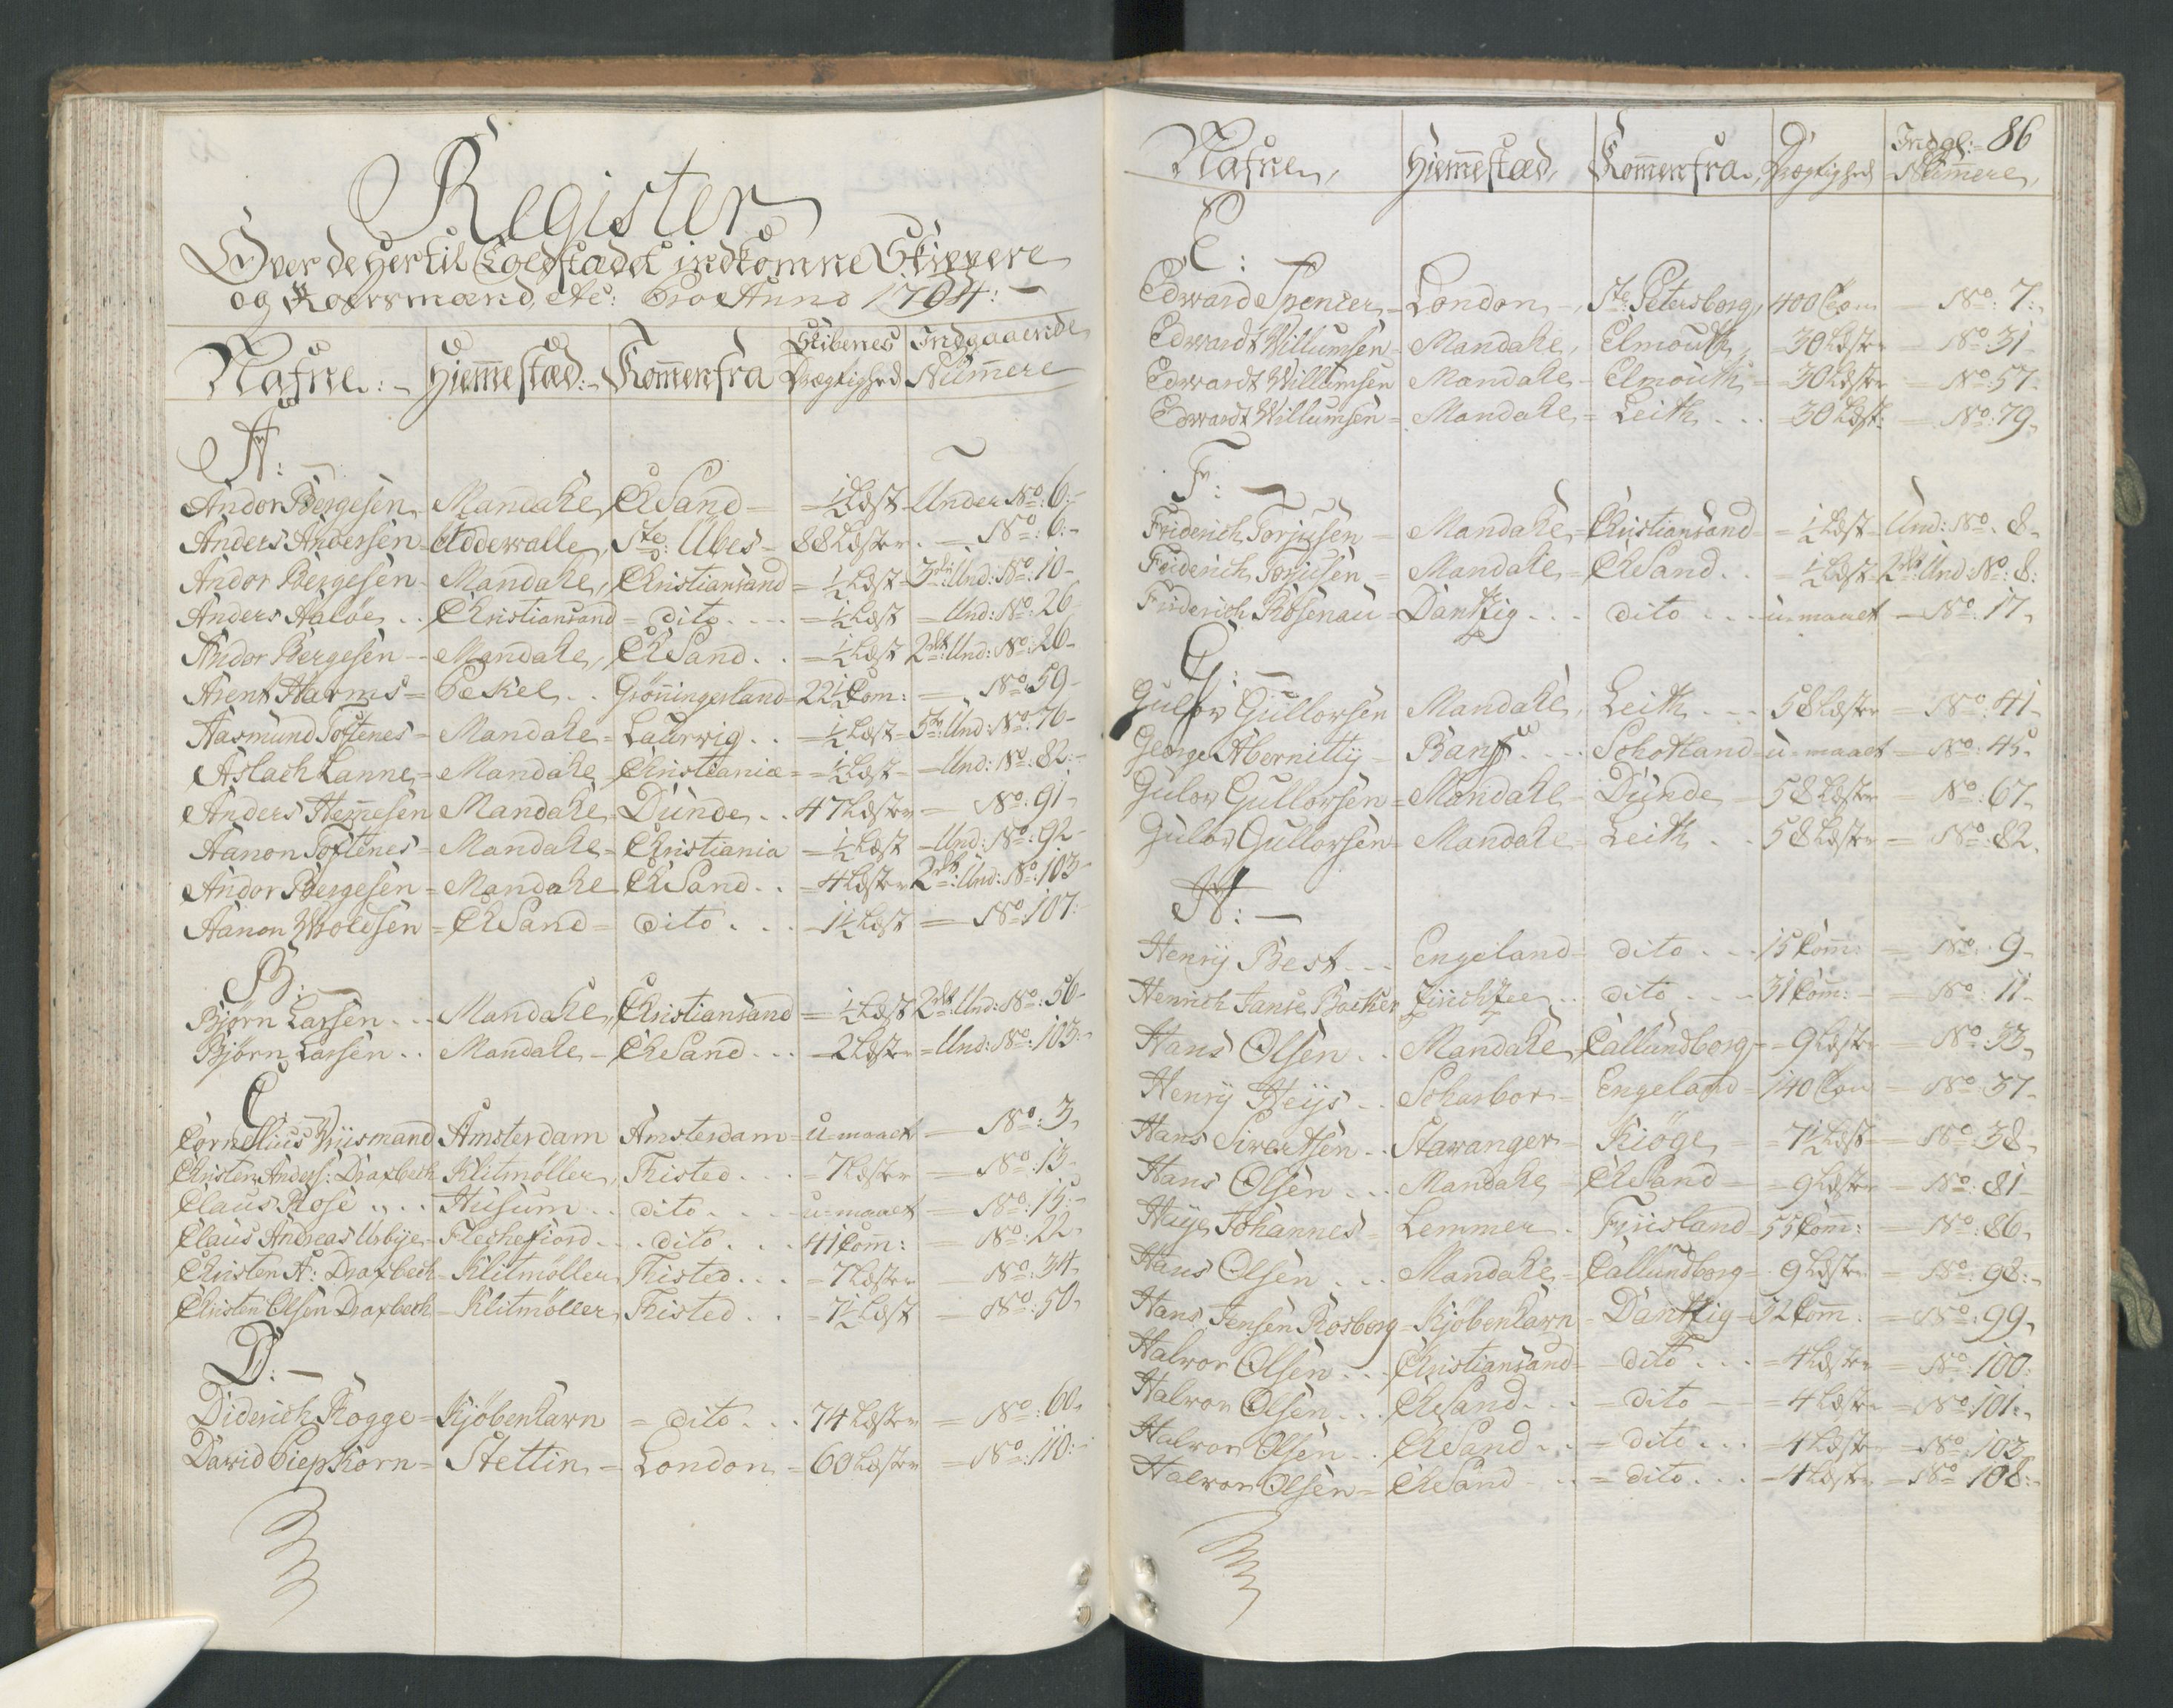 Register
Over de Hertil Toldstædet indkomne Skippere
og Koersmænd, etc: Pro Anno 1794: -
Nafne: - Hiem̄estæd: - Kom̄en fra Skibenes Drægtighed Indgaaende Num̄ere
A: -
Andor Bergesen Mandahl, ChSand - = ½ Læst - Under No: 6: -
Anders Andersen - Uddewalle, Ste: Übes - 88 Læster. - No: 6: -
Andor Bergesen - Mandahl, Christiansand = ½ Læst - 3die Und: No: 10 -
Anders Aaløe .. Christiansand = dito .... = ½ Læst = Und: No: 26 -
Andor Bergesen - Mandahl, ChSand .. = ½ Læst 2det Und: No: 26 -
Arent Harms = Pekel .. Gröningerland = 22½ Com: = No: 59 -
Aasmund Toftenes = Mandahl = Laurwig .. = ½ Læst - 5te Und: No: 76 -
Aslach Lanne = Mandahl Christiania = = ½ Læst - = Und: No: 82: -
Anders Hem̄esen Mandahl Dunde .. 47 Læster = No: 91 -
Aanon Toftenes = Mandahl = Christiania = ½ Læst = Und: No: 92 -
Andor Bergesen = Mandahl ChSand .. = 4 Læster 2det Und: No: 103 -
Aanon Woldsen = ChSand = dito ... - 1½ Læst = No: 107:
B: -
Bjørn Larsen ... Mandahl, Christiansand = ½ Læst 2det Und: No: 56 -
Bjørn Larsen .. Mandahl - ChSand ... = 2 Læster = Und: No: 103: -
C
Cornelius Wiismand Amsterdam Amsterdam = u-maalt = No: 3,
Christen Anders: Draxbech Klitmøller, Tisted ... = 7 Læster = No: 13 -
Claus Rose .... Husum .. dito ... u-maalt = No: 15: -
Claus Andreas Urbye = Flechefiord ... dito ... 41 Com̄: = No: 22,
Christen A: Draxbech = Klitmøller, Tisted ... = 7 Læster = No: 34,
Christen Olsen Draxbech = Klitmøller Tisted ... = 7½ Læst = No: 50,
D: -
Diderich Kogge = Kjøbenhavn = dito ... 74 Læster = No: 60,
David Piepkorn = Stettin = London = 60 Læster = No: 110: -
86
Nafne, Hiem̄estæd, Kom̄en fra, Drægtighed Indg: Num̄ere,
E: -
Edward Spencer = London -, Ste: Petersborg, 400 Com = No: 7:,
Edwardt Willumsen = Mandahl, Elmouth, = 30 Læster = No: 31 -
Edwardt Willumsen Mandahl - Elmouth = 30 Læster = No: 57 -
Edwardt Willumsen = Mandahl = Leith ... = 30 Læst: = No: 79,
F: -
Friderich Torjusen = Mandahl = Christiansand - = ½ Læst - Und: No: 8,
Friderich Torjusen = Mandahl = ChSand .. = ½ Læst = 2det Und: No: 8:
Friderich Rosenau - Dantzig ... dito ... u-maalt = No: 17,
G: -
Gulov Gullovsen Mandahl, Leith ... 58 Læster = No: 41 -
George Abernitty - Banff ... Schotland = u-maalt = No: 45,
Gulov Gullovsen = Mandahl - Dunde = 58 Læster No: 67,
Gulov Gullovsen = Mandahl - Leith .. 58 Læster = No: 82,
H: -
Henry Best ... Engeland = dito ... 15 Com̄: = No: 9 -
Henrich Janse Backer .. dito ... 31 Com̄: - = No: 11 -
Hans Olsen .. Mandahl, Callundborg - = 9 Læster = No: 33,
Henry Heys .. Scharbor = Engeland = 140 Com = No: 37 -
Hans Sivertsen .. Stavanger = Kiöge - = 7½ Læst = No: 38,
Hans Olsen ... Mandahl ChSand - = 9 Læster = No: 81 -
Haye Johannes = Lemmer . Friisland = 55 Com̄: = No: 86,
Hans Olsen ... Mandahl = Callundborg = . 9 Læster = No: 98: -
Hans Jensen Rosborg = Kjøbenhavn = Dantzig = 52 Com̄: = No: 99,
Halvor Olsen ... Christiansand = = dito ... = 4 Læster = No: 100:
Halvor Olsen ... ChSand ... = dito - = 4 Læster = No: 101:,
Halvor Olsen .. ChSand ... = dito ... = 4 Læster = No: 102,
Halvor Olsen = ChSand .. = dito ... = 4 Læster = No: 108: -